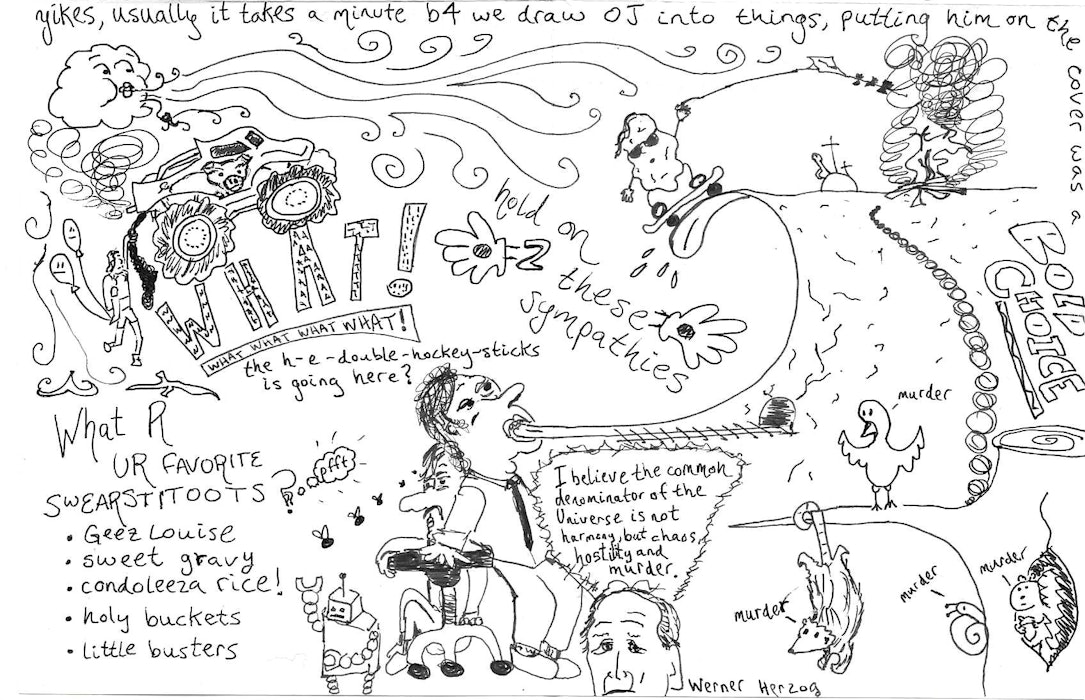 yikes, usually it takes a minute b4 we draw OJ into things, putting him on the cover was a
BOLD
CHOICE
WHAT!
WHAT WHAT WHAT WHAT!
the h-e-double-hockey-sticks
is going here?
hold
on
these
sympathies
What R
UR FAVORITE
SWEARSTITOOTS?
• Geez Louise
• sweet gravy
• condoleeza rice!
• holy buckets
• little busters
pfft
I believe the common
denominator of the
Universe is not
harmony, but chaos,
hostility and
murder.
Werner Herzog
murder
murder
murder
murder